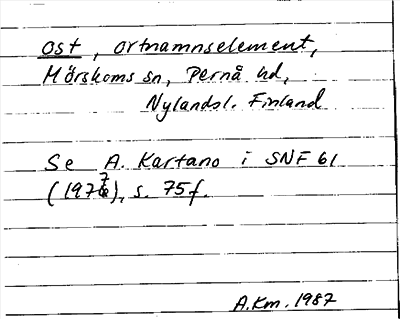 ost, ortnamnselement,
Mörskoms sn, Pernå hd,
Nylandsl. Finland
Se A. Kartano i SNF 61
(1977), s. 75f.
A.Km. 1987